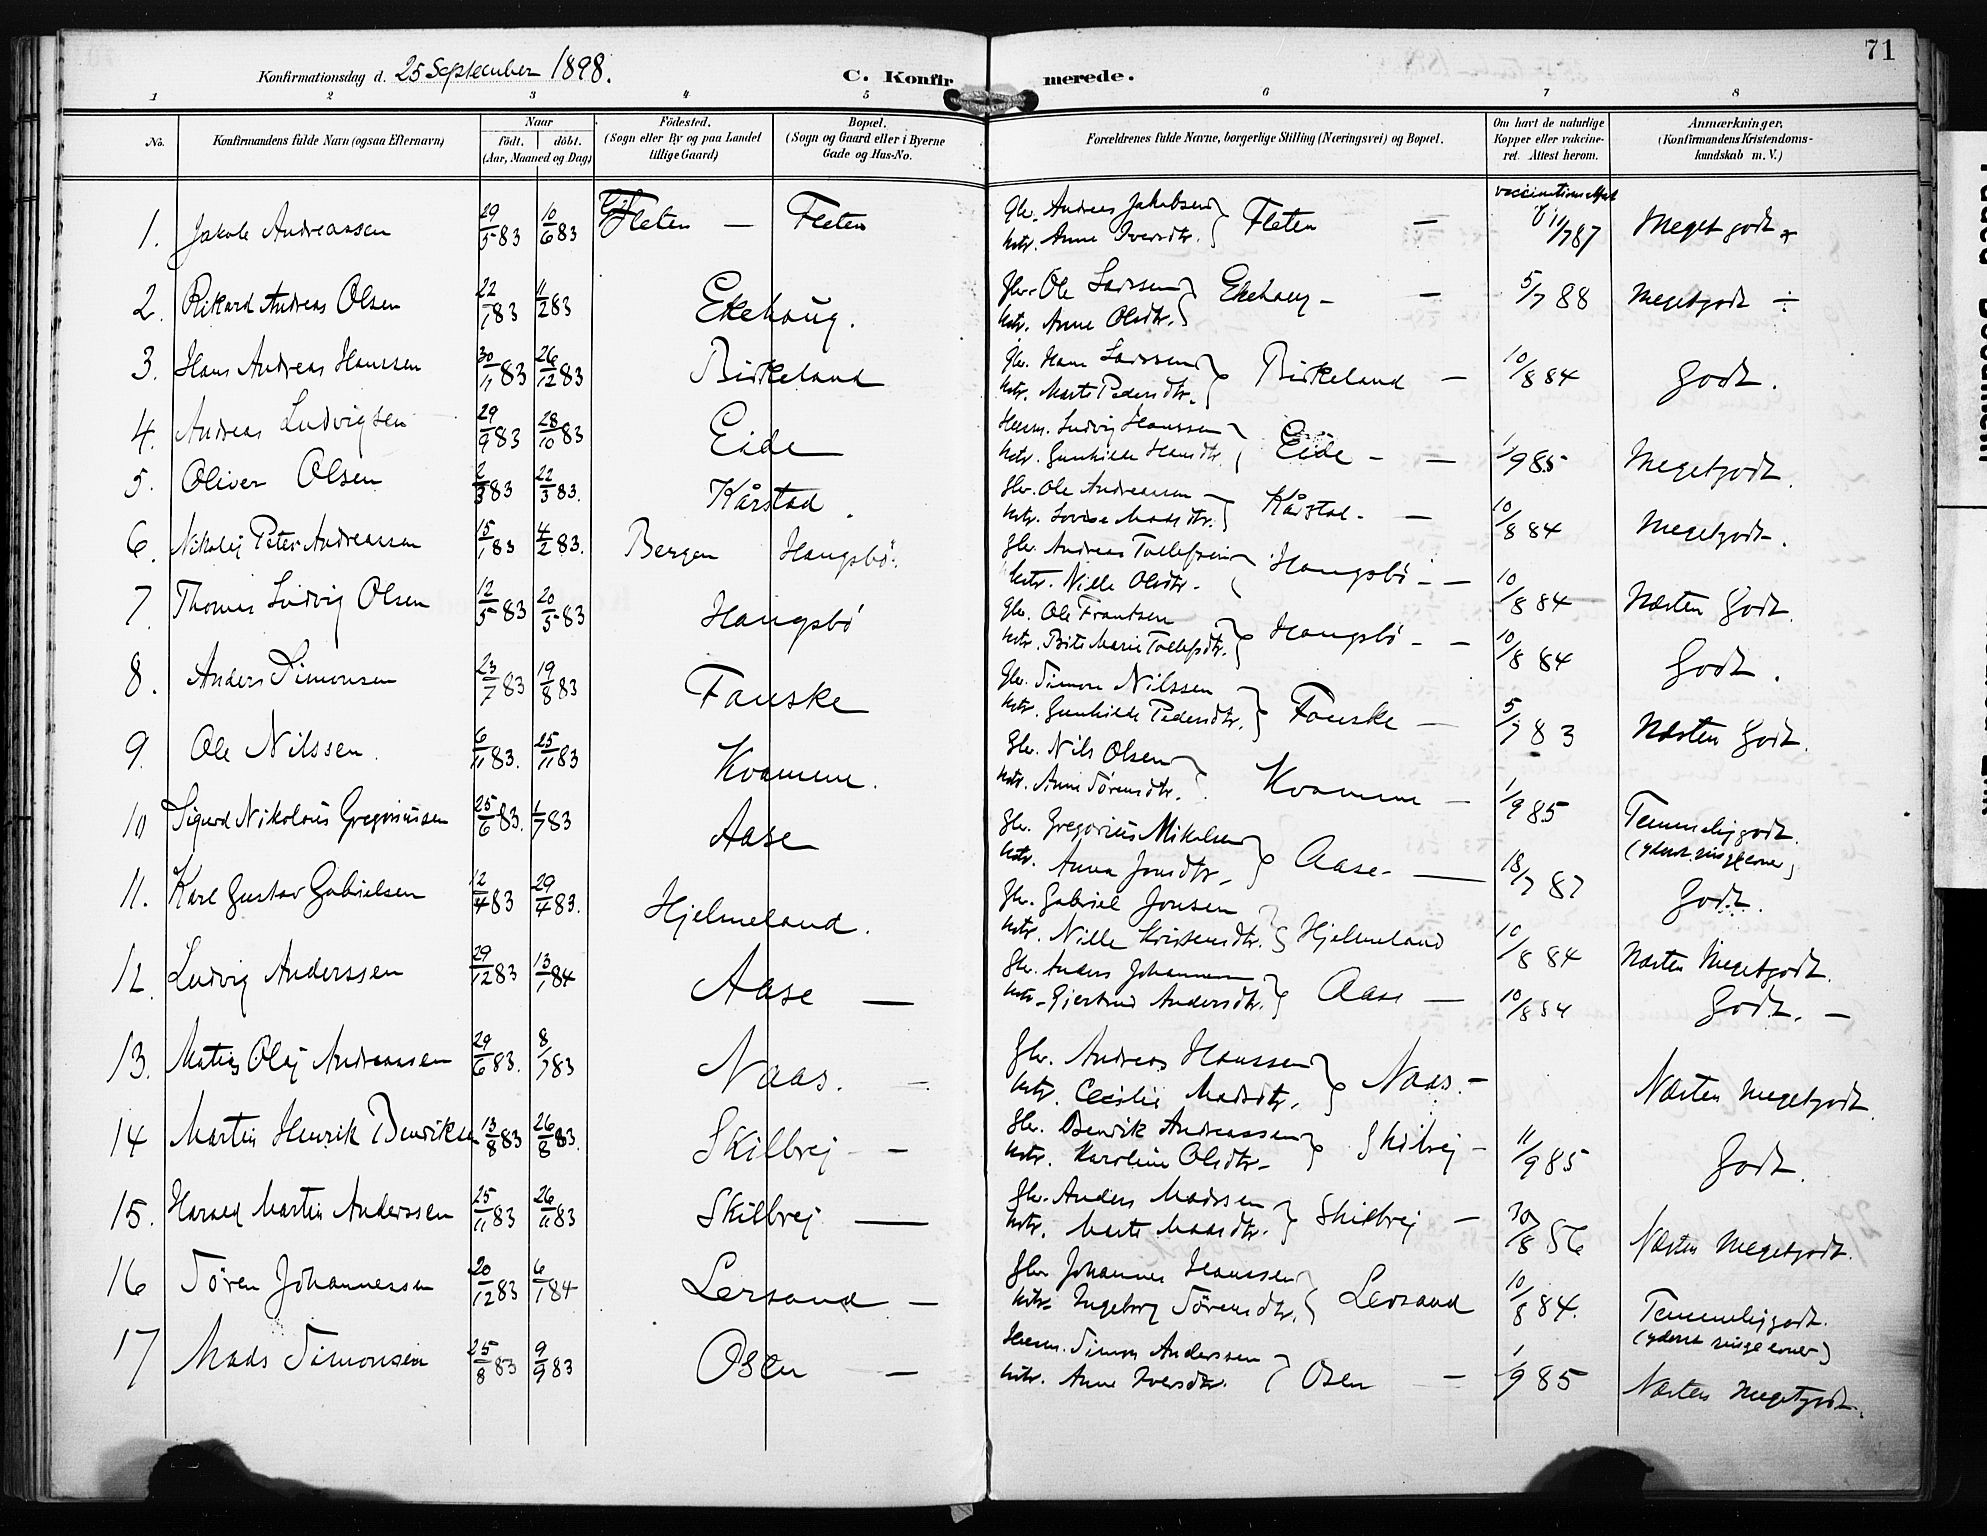 71
Konfirmationsdag d. 25 September 1898.
C. Konfirmerede.
1 2 3 4 5 6 7 8
No.
Konfirmandens fulde Navn (ogsaa Efternavn)
Naar
født. døbt.
(Aar, Maaned og Dag)
Fødested.
(Sogn eller By og paa Landet
tillige Gaard)
Bopæl.
(Sogn og Gaard eller i Byerne
Gade og Hus-No.
Forældrenes fulde Navne, borgerlige Stilling (Næringsvei) og Bopæl.
Om havt de naturlige
Kopper eller vakcine-
ret. Attest herom.
Anmærkninger.
(Konfirmandens Kristendoms-
kundskab m. V.)
1. Jakob Andreassen 29/5 83 10/6 83 Fleten — Fleten Gbr. Andreas Jakobsen Kstr. Anne Iversdtr. } Fleten — 11/7 87 Meget godt
2. Rikard Andreas Olsen 22/1 83 11/2 83 Ekehaug. Gbr. Ole Larssen Kstr. Anne Olsdtr. } Ekehaug — — 5/7 88 Megetgodt ÷
3. Hans Andreas Hanssen 30/11 83 26/12 83 Birkeland Gbr. Hans Larssen Kstr. Marte Pedersdtr. } Birkeland — 10/8 84 Godt.
4. Andreas Ludvigsen 29/9 83 28/10 83 Eide Huusm. Ludvig Hanssen Kstr. Gunhilde Hansdtr. } Eide — — 1/9 85 Megetgodt.
5. Oliver Olsen 2/3 83 22/3 83. Kårstad. Gbr. Ole Andreassen Kstr. Lovise Madsdtr. } Kårstad — — 10/8 84 Megetgodt.
6. Nikolij Peter Andreassen 15/1 83 4/2 83. Bergen Haugsbø. Gbr. Andreas Tollefsen Kstr. Nille Olsdtr. } Haugsbø — — 10/8 84 Næsten Godt.
7. Thomas Ludvig Olsen 12/5 83 20/5 83 Haugsbø Gbr. Ole Frantsen Kstr. Brite Marie Tollefsdtr. } Haugsbø — — 10/8 84 Godt.
8. Anders Simonsen 23/7 83 19/8 83 Fauske Gbr. Simon Nilssen Kstr. Gunhilde Pedersdtr. } Fauske — 5/7 83 Næsten Godt.
9. Ole Nilssen. 6/11 83. 25/11 83 Kvamme. Gbr. Nils Olsen Kstr. Anne Sørensdtr. } Kvamme — 1/9 85 Temmeligodt. (yderst ringe evner)
10 Sigurd Nikolaus Gregoriussen 25/6 83. 1/7 83 Aase Gbr. Gregorius Mikelsen Kstr. Anna Jonsdtr. } Aase — 18/7 87 Godt.
11. Karl Gustav Gabrielsen 12/4 83 29/4 83. Hjelmeland. Gbr. Gabriel Jonsen Kstr. Nille Kristensdtr. } Hjelmeland 10/8 84 Næsten Megetgodt.
12. Ludvig Anderssen 29/12 83 13/1 84 Aase — Gbr. Anders Johannessen Kstr. Gjertrud Andersdtr. } Aase — 10/8 84 Godt. —
13. Matias Olaj Andreassen 29/6 83. 8/7 83 Naas. — Gbr. Andreas Hanssen Kstr. Cecilie Madsdtr. } Naas — Næsten Megetgodt
14 Martin Henrik Bendiksen 13/8 83 26/8 83. Skilbrej — Gbr. Bendik Andreassen Kstr. Karoline Olsdtr. } Skilbrej — 11/9 85 Godt.
15. Harald Martin Anderssen 25/11 83 26/11 83 Skilbrej — Gbr. Anders Madssen Kstr. Marte Madsdtr. } Skilbrej — 30/8 86 Næsten Megetgodt.
16 Søren Johannessen 20/12 83 6/1 84 Lersand — Gbr Johannes Hanssen Kstr. Ingeborg Sørensdtr. } Lersand 10/8 84. Temmeligodt. (yderst ringe evner)
17 Mads Simonsen 25/8 83 9/9 83 Osen — Huusm. Simon Anderssen Kstr. Anne Iversdtr. } Osen — 1/9 85 Næsten Megetgodt.